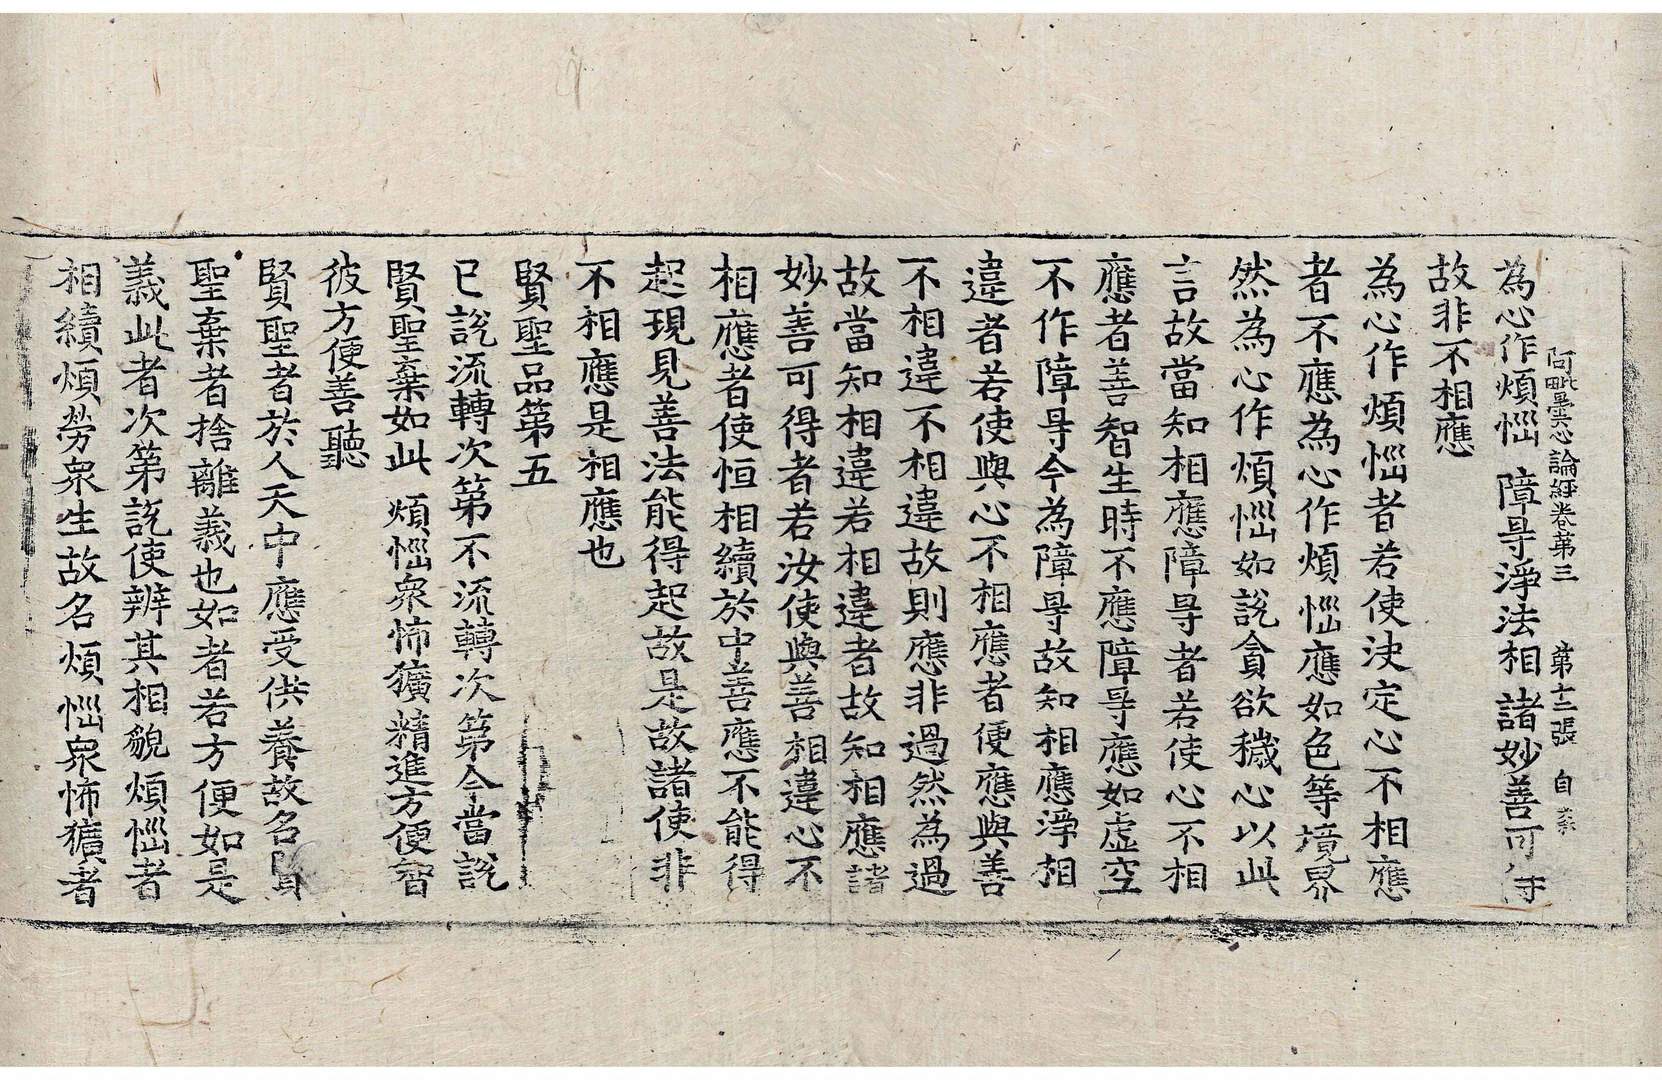 阿毗曇心論經卷第三　第十三張　自
為心作煩惱　障㝵淨法相　諸妙善可得
故非不相應
為心作煩惱者若使決定心不相應
者不應為心作煩惱應如色等境界
然為心作煩惱如說貪欲穢心以此
言故當知相應障㝵者若使心不相
應者善智生時不應障㝵應如虛空
不作障㝵今為障㝵故知相應淨相
違者若使與心不相應者便應與善
不相違不相違故則應非過然為過
故當知相違若相違者故知相應諸
妙善可得者若汝使與善相違心不
相應者使恒相續於中善應不能得
起現見善法能得起故是故諸使非
不相應是相應也
賢聖品第五
已說流轉次第不流轉次第今當說
賢聖棄如此　煩惱衆怖獷精進方便智
彼方便善聽
賢聖者於人天中應受供養故名賢
聖棄者捨離義也如者若方便如是
義此者次第說使辨其相貌煩惱者
相續煩勞衆生故名煩惱衆怖獷者